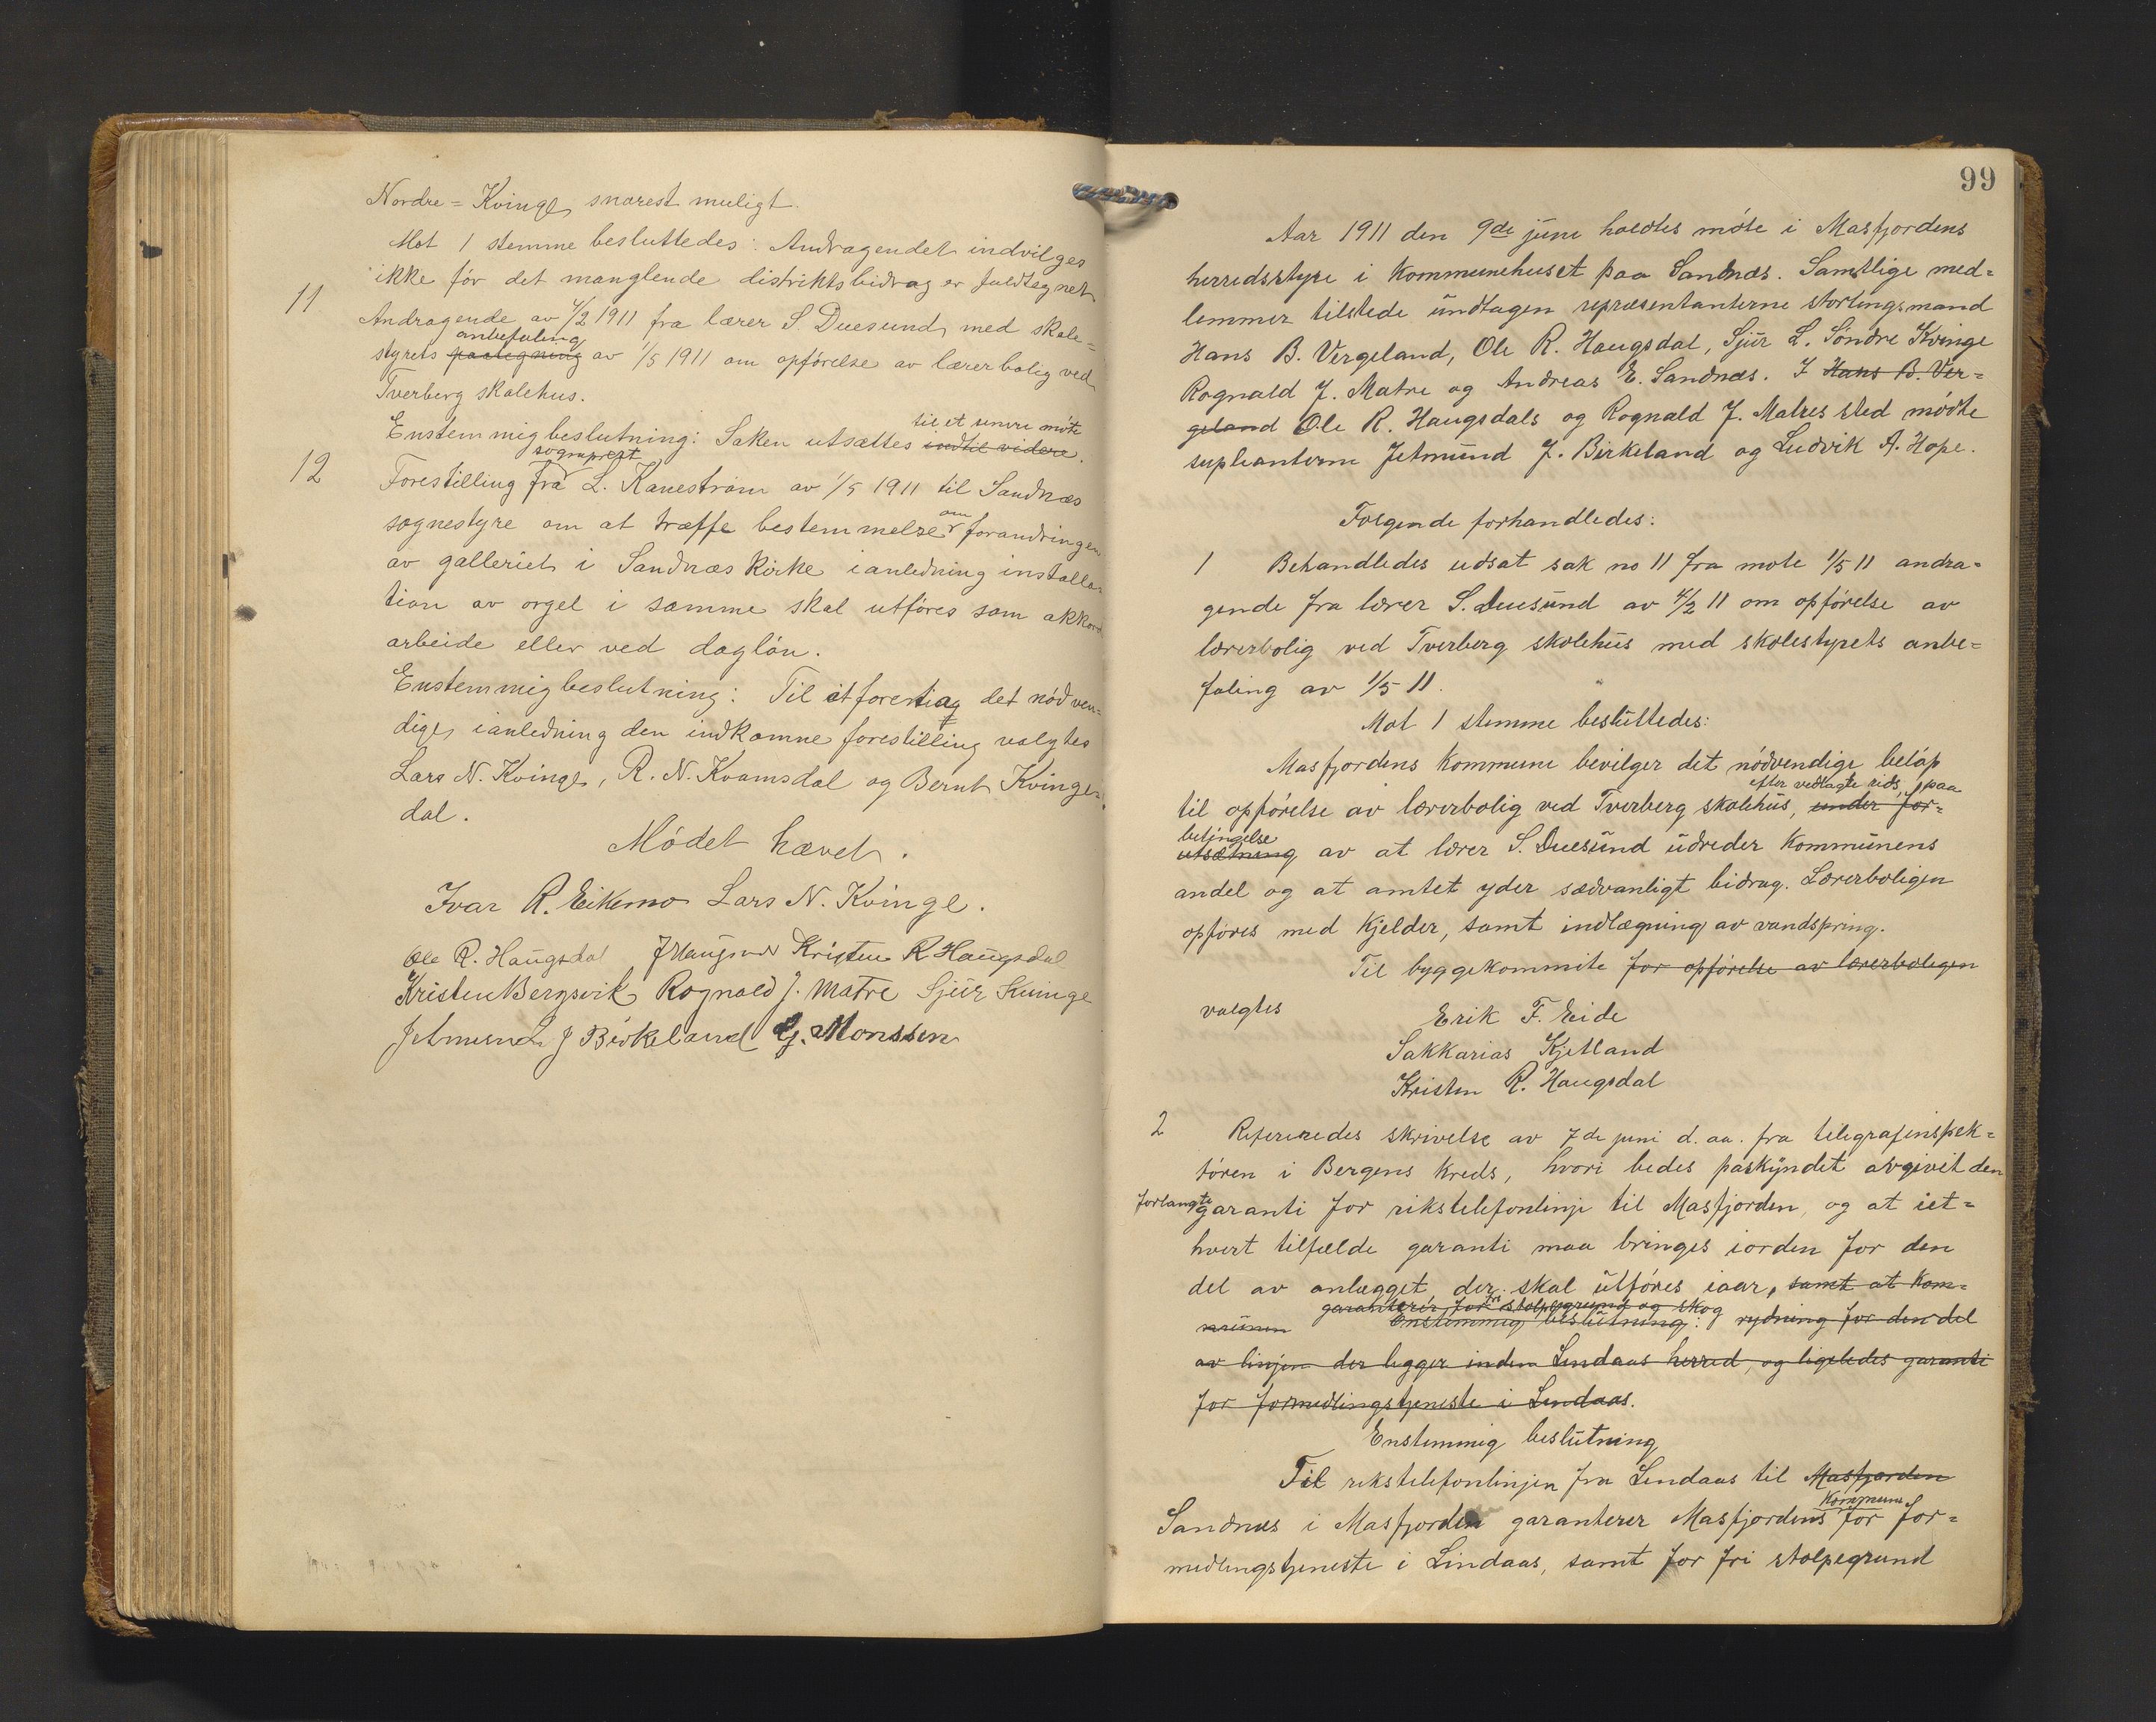 Nordre = Kvinge snarest muligt.
Mot 1 stemme besluttedes: Andragendet indvilges
ikke før det manglende distriktsbidrag er fuldtegnet.
11 Andragende av 4/2 1911 fra lærer S. Duesund, med skole=
anbefaling
styrets paategning av 1/5 1911 om opførelse av lærerbolig ved
Tverberg skolehus.
til et senere møte
Enstemmig beslutning: Saken utsættes indtil videre.
sogneprest
12 Forestilling fra L. Kanestrøm av 1/5 1911 til Sandnæs
sognestyre om at træffe bestemmelse om forandringen
av galleriet i Sandnæs kirke ianledning installa
tion av orgel i samme skal utføres som akkord
arbeide eller ved dagløn.
Enstemmig beslutning: Til at foretiag det nødven=
dige ianledning den indkomne forestilling valgtes
Lars N. Kvinge, R. N. Kvamsdal og Bernt Kvinge=
dal.
Mødet hævet.
Ivar R. Eikemo Lars N. Kvinge.
Ole R. Haugsdal Kristen R Haugsdal
Kristen Bergsvik Rognald J. Matre Sjur Kvinge
Jetmund J Birkeland G. Monssen
99
Aar 1911 den 9de juni holdtes møte i Masfjordens
herredsstyre i kommunehuset paa Sandnæs. Samtlige med=
lemmer tilstede undtagen repræsentanterne stortingsmand
Hans B. Vergeland, Ole R. Haugsdal, Sjur L. Søndre Kvinge
Rognald J. Matre og Andreas E. Sandnæs. I Hans B. Ver=
geland Ole R. Haugsdals og Rognald J. Matres sted mødte
supleanterne Jetmund J. Birkeland og Ludvik A. Hope.
Følgende forhandledes:
1 Behandledes udsat sak no 11 fra møte 1/5 11 andra=
gende fra lærer S. Duesund av 4/2 11 om opførelse av
lærerbolig ved Tverberg skolehus med skolestyrets anbe=
faling av 1/5 11.
Mot 1 stemme besluttedes:
Masfjordens kommune bevilger det nødvendige beløp
efter vedlagte rids, paa
til opførelse av lærerbolig ved Tverberg skolehus, under for=
betingelse
utsætning av at lærer S. Duesund udreder kommunens
andel og at amtet yder sædvanligt bidrag. Lærerboligen
opføres med kjelder, samt indlægning av vandspring.
Til byggekommite for opførelse av lærerboligen
valgtes Erik F. Eide
Sakkarias Kjetland
Kristen R. Haugsdal
2 Refereredes skrivelse av 7de juni d. aa. fra telegrafinspek=
tøren i Bergens kreds, hvori bedes paskyndet avgivet den
forlangte garanti for rikstelefonlinje til Masfjorden, og at iet=
hvert tilfælde garanti maa bringes iorden for den
del av anlægget, der skal utføres iaar, samt at kom=
garanterer for fri stolpegrund og skog
munen Enstemmig beslutning: rydning for den del
av linjen der ligger inden Lindaas herred, og ligeledes garanti
for formidlingstjeneste i Lindaas.
Enstemmig beslutning
Til rikstelefonlinjen fra Lindaas til Masfjorden
kommune
Sandnæs i Masfjorden garanterer Masfjordens for for=
midlingstjeneste i Lindaas, samt for fri stolpegrund